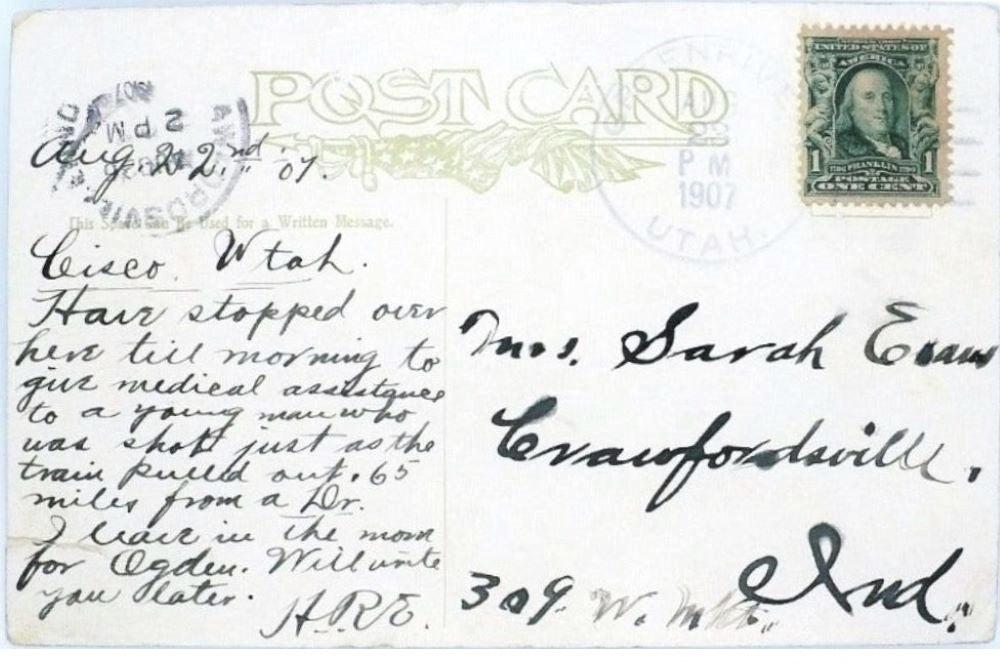 POST CARD
UNITED STATES OF
AMERICA
1 FRANKLIN 1
POSTAGE
ONE CENT
GREENRIVER
AUG
23
P M
1907
UTAH.
2 PM
1907
Aug. 22nd "07.
This Space Can Be Used for a Written Message.
Cisco. Utah.
Have stopped over
here till morning to
give medical assistance
to a young man who
was shot just as the
train pulled out. 65
miles from a Dr.
I leave in the morn
for Ogden. Will write
you later.
H.R.E.
Mrs. Sarah Evans
Crawfordsville,
Ind.
309 W. Mkt.